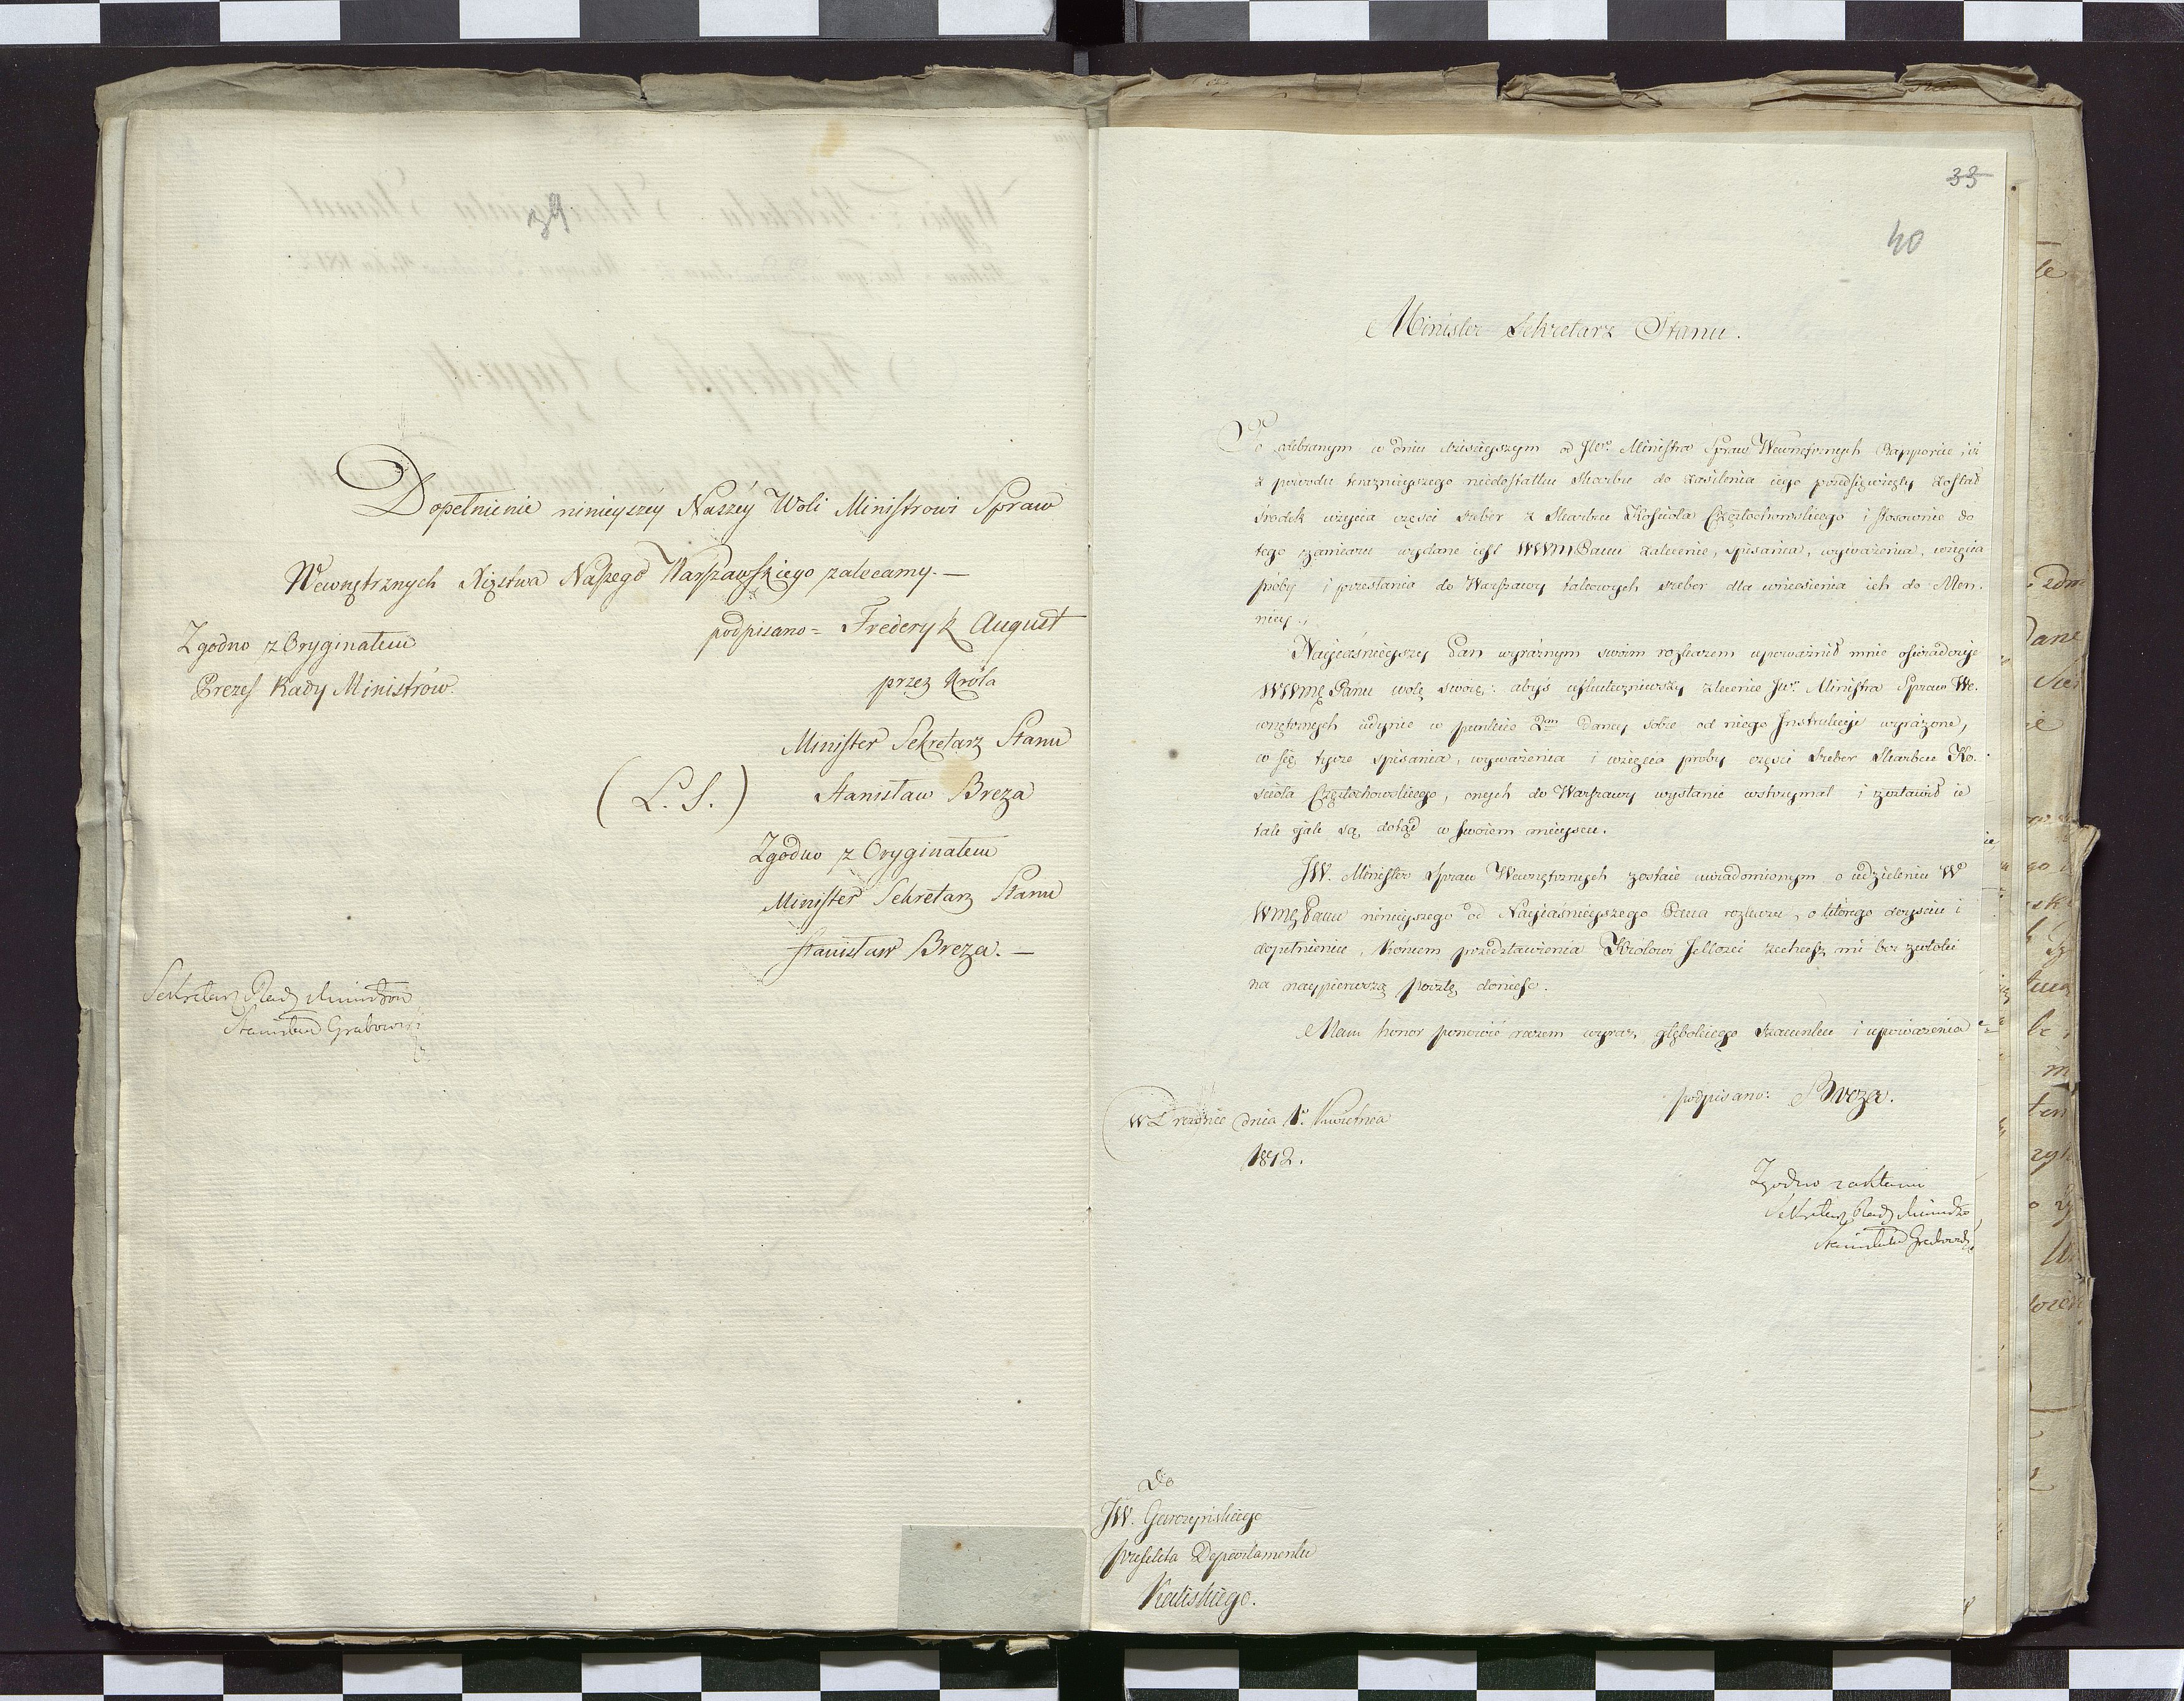 39
Dopełnienie ninieyszéy Naszéy Woli Ministrowi Spraw
Wewnętrznych Xięstwa Naszego Warszawskiego zalecamy. —
podpisano = Frederyk August
Zgodno z Oryginałem
Prezes Rady Ministrów.
przez Króla
Minister Sekretarz Stanu
(L. S.) Stanisław Breza
Zgodno z Oryginałem
Minister Sekretarz Stanu
Stanisław Breza. —
Sekretarz Rady Ministrów
Stanisław Grabowski
33
40
Minister Sekretarz Stanu.
Po odebranym w dniu dzisieyszym od JW. Ministra Spraw Wewnętrznych Rapporcie, iż
z powodu teraznieyszego niedostatku Skarbu do zasilenia iego przedsięwzięty został
środek użycia części sreber z Skarbcu Kościoła Częstochowskiego i stosownie do
tego zamiaru wydane iest WWMPanu zalecenie, spisania, wyważenia, wzięcia
próby i przesłania do Warszawy takowych sreber dla wniesienia ich do Men-
nicy.
Nayiaśnieyszy Pan wyraźnym swoim rozkazem upoważnił mnie oświadczyć
WWMPanu wolę swoię: abyś uskuteczniwszy zlecenie JW. Ministra Spraw We-
wnętrznych iedynie w punkcie 2m daney sobie od niego Instrukcyi wyrażone,
co się tycze spisania, wyważenia i wzięcia próby części sreber Skarbcu Ko-
ścioła Częstochowskiego, onych do Warszawy wysłanie wstrzymał i zostawił ie
tak jak są dotąd w swoiem mieyscu.
JW. Minister Spraw Wewnętrznych zostaie uwiadomionym o udzieleniu W
WMPanu ninieyszego od Nayiaśnieyszego Pana rozkazu, o którego doyściu i
dopełnieniu, końcem przedstawienia Królowi Jmci zechcesz mi bez zwłoki
na naypierwszą pocztę donieść.
Mam honor ponowić razem wyraz głębokiego szacunku i upoważenia
podpisano: Breza.
W Dreznie dnia 1. Kwietnia
1812.
Zgodno z aktami
Sekretarz Rady Ministrów
Stanisław Grabowski
Do
JW. Garczyńskiego
Prefekta Departamentu
Kaliskiego.